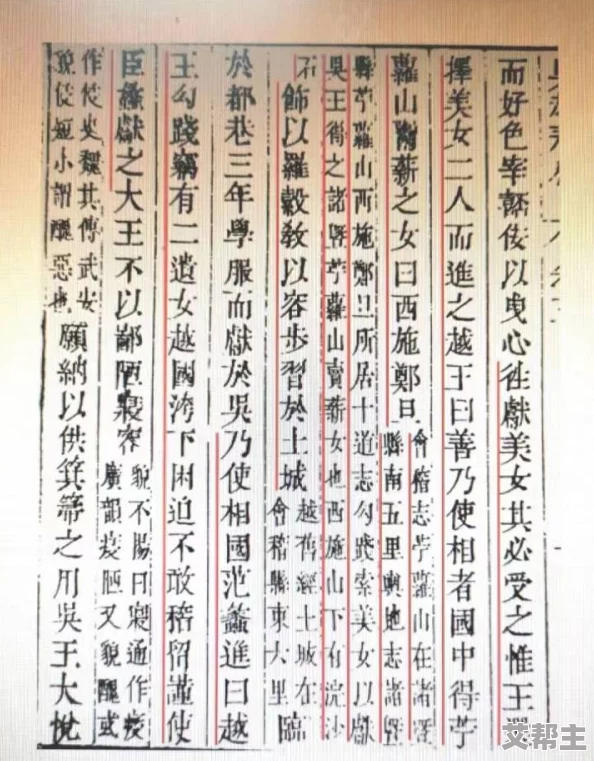 而好色宰嚭佞以曳心往獻美女其必受之惟王選
擇美女二人而進之越王曰善乃使相者國中得苧
蘿山鬻薪之女曰西施鄭旦
會稽志苧蘿山在諸曁
縣南五里輿地志諸曁
縣苧蘿山西施鄭旦所居十道志勾踐索美女以獻
吳王得之諸曁苧蘿山賣薪女也西施山下有浣沙
石
飾以羅縠教以容步習於土城
越舊經土城在
會稽縣東六里
臨
於都巷三年學服而獻於吳乃使相國范蠡進曰越
王勾踐竊有二遺女越國洿下困迫不敢稽留謹使
臣蠡獻之大王不以鄙陋寢容
貌不陽曰寢通作㾛
廣韻㾛陋又貌醜或
作侵史魏其傳武安
貌侵短小謂醜惡也
願納以供箕箒之用吳王大悅
艾帮主